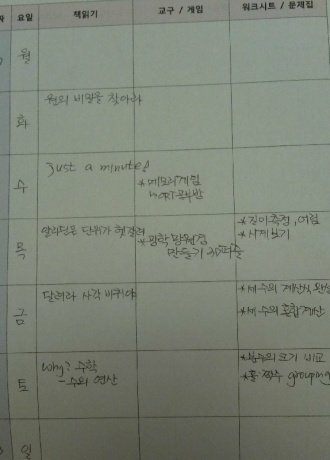 요일 책읽기 교구 / 게임 워크시트 / 문제집
월
화 원의 비밀을 찾아라
수 Just a minute!
*메모리게임
목 알라딘은 단위가 헷갈려
만들기 3D퍼즐
*길이측정, 어림
*시계보기
금 달려라 사각 바퀴야
*세 수의 계산식 완성
*세 수의 혼합계산
토 Why? 수학
- 수와 연산
크기 비교
*홀짝수 grouping
일